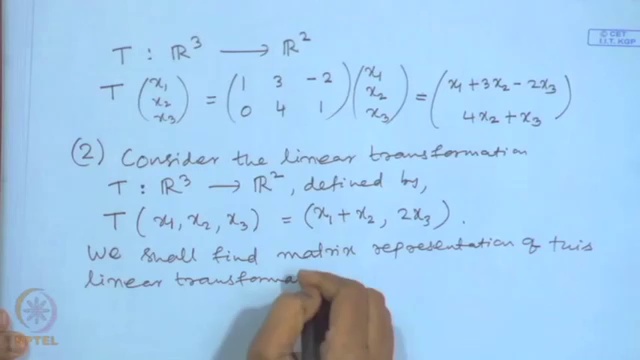 © CET
I.I.T. KGP
T : ℝ³ ⟶ ℝ²
T (x₁ x₂ x₃) = (1 3 -2 0 4 1) (x₁ x₂ x₃) = (x₁ + 3x₂ - 2x₃ 4x₂ + x₃)
(2) Consider the linear transformation
T : ℝ³ ⟶ ℝ², defined by,
T (x₁, x₂, x₃) = (x₁ + x₂, 2x₃).
We shall find matrix representation of this
linear transforma
NPTEL